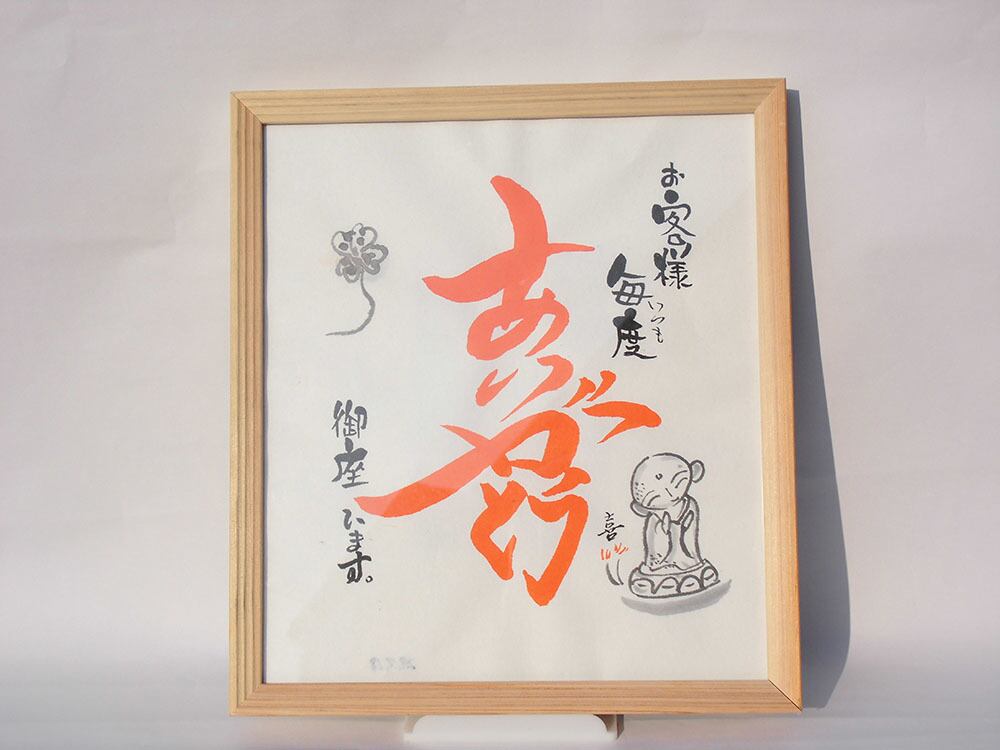 お客様
毎度
いつも
ありがとう
御座います。
喜